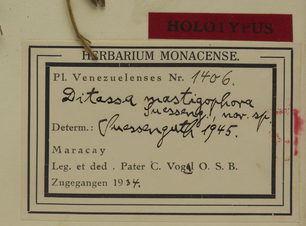 HOLOTYPUS
HERBARIUM MONACENSE.
Pl. Venezuelenses Nr. 1406.
Ditassa mastigophora
Suesseng., nov. sp.
Determ.: Suessenguth 1945.
Maracay
Leg. et ded. Pater C. Vogl O. S. B.
Zugegangen 1934.